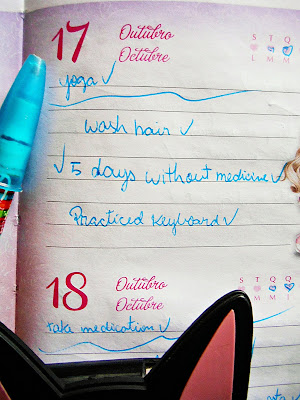 17 Outubro S T Q
Octubre L M M
yoga ✓
wash hair ✓
✓ 5 days without medicine ✓
Practiced Keyboard ✓
18 Outubro S T Q Q
Octubre L M M
take medication ✓